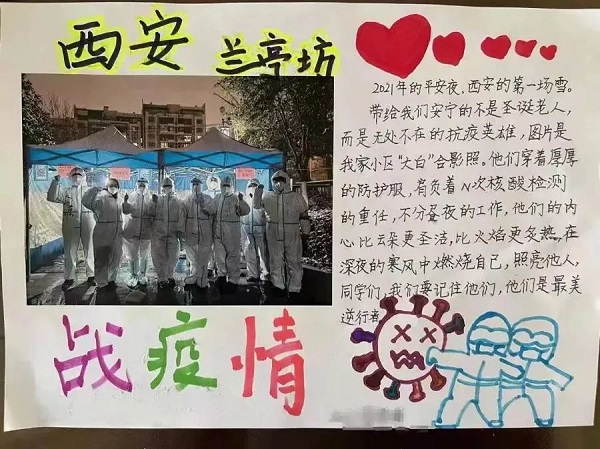 西安 兰亭坊
2021年的平安夜,西安的第一场雪。
带给我们安宁的不是圣诞老人,
而是无处不在的抗疫英雄,图片是
我家小区“大白”合影照。他们穿着厚厚
的防护服,肩负着N次核酸检测
的重任,不分昼夜的工作,他们的内
心比云朵更圣洁,比火焰更炙热,在
深夜的寒风中燃烧自己,照亮他人,
同学们,我们要记住他们,他们是最美
逆行者
战疫情